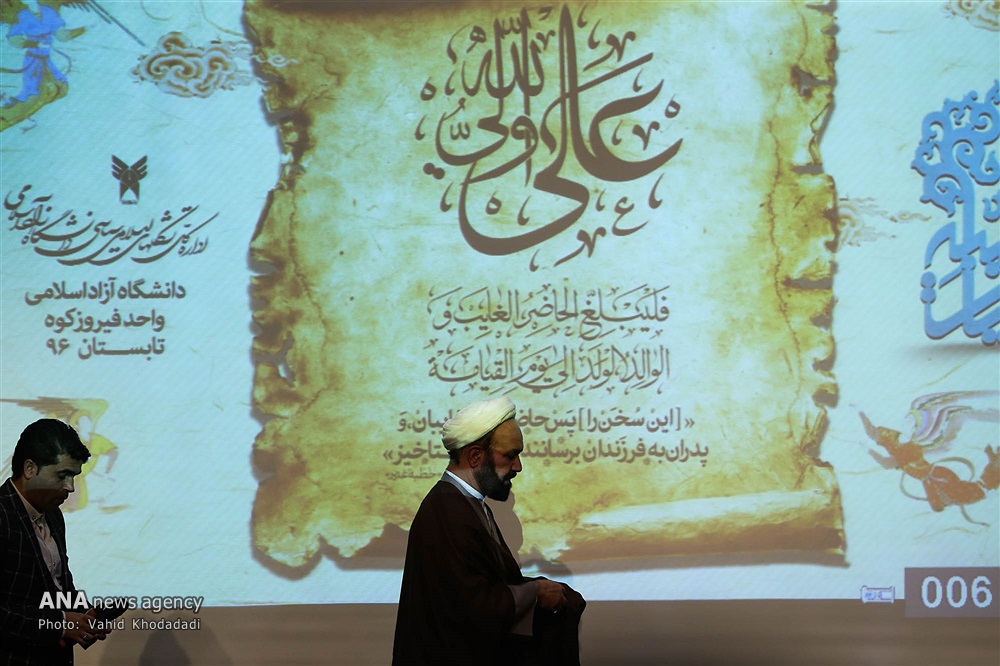 علی ولیّ الله
اداره کل تشکلهای اسلامی سیاسی دانشگاه آزاد اسلامی
دانشگاه آزاد اسلامی
واحد فیروزکوه
تابستان ۹۶
فَلیُبَلِّغِ الحاضِرُ الغایِبَ وَ
الوالِدُ الوَلَدَ اِلی یَومِ القِیامَة
«[این سخن را] پس
پدران به فرزندان برسانند
ANA news agency
Photo: Vahid Khodadadi
006